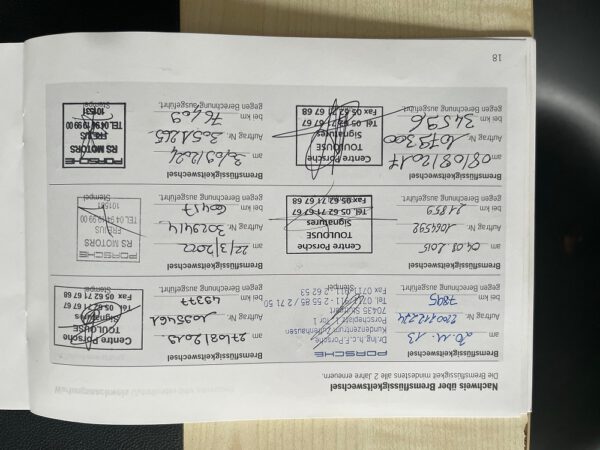 Nachweis über Bremsflüssigkeitswechsel
Die Bremsflüssigkeit mindestens alle 2 Jahre erneuern.
Bremsflüssigkeitswechsel
am 20.11.13
Auftrag Nr.
bei km 7895
gegen Berechnung ausgeführt.
PORSCHE
Dr.Ing. h.c.F.Porsche
Kundenzentrum Zuffenhausen
Porscheplatz 1, Tor 1
Stempel
Bremsflüssigkeitswechsel
am 27/08/2019
Auftrag Nr. 1095461
bei km 49377
gegen Berechnung ausgeführt.
Centre Porsche
TOULOUSE
Signatures
Tél. 05 62 71 67 67
Fax 05 62 71 67 68
Stempel
Bremsflüssigkeitswechsel
am 04.03.2015
Auftrag Nr. 1064592
bei km 21859
gegen Berechnung ausgeführt.
Centre Porsche
TOULOUSE
Signatures
Tél. 05 62 71 67 67
Fax 05 62 71 67 68
Bremsflüssigkeitswechsel
am 22/3/2022
Auftrag Nr. 3029414
bei km 60417
gegen Berechnung ausgeführt.
PORSCHE
RS MOTORS
FREJUS
TEL.04 94 19 99 00
101531
Stempel
Bremsflüssigkeitswechsel
am 08/08/2017
Auftrag Nr. 1079300
bei km 34596
gegen Berechnung ausgeführt.
Centre Porsche
TOULOUSE
Signatures
Tél. 05 62 71 67 67
Fax 05 62 71 67 68
Bremsflüssigkeitswechsel
am 3/09/2024
Auftrag Nr. 3051265
bei km 76409
gegen Berechnung ausgeführt.
PORSCHE
RS MOTORS
FREJUS
TEL.04 94 19 99 00
101531
Stempel
18